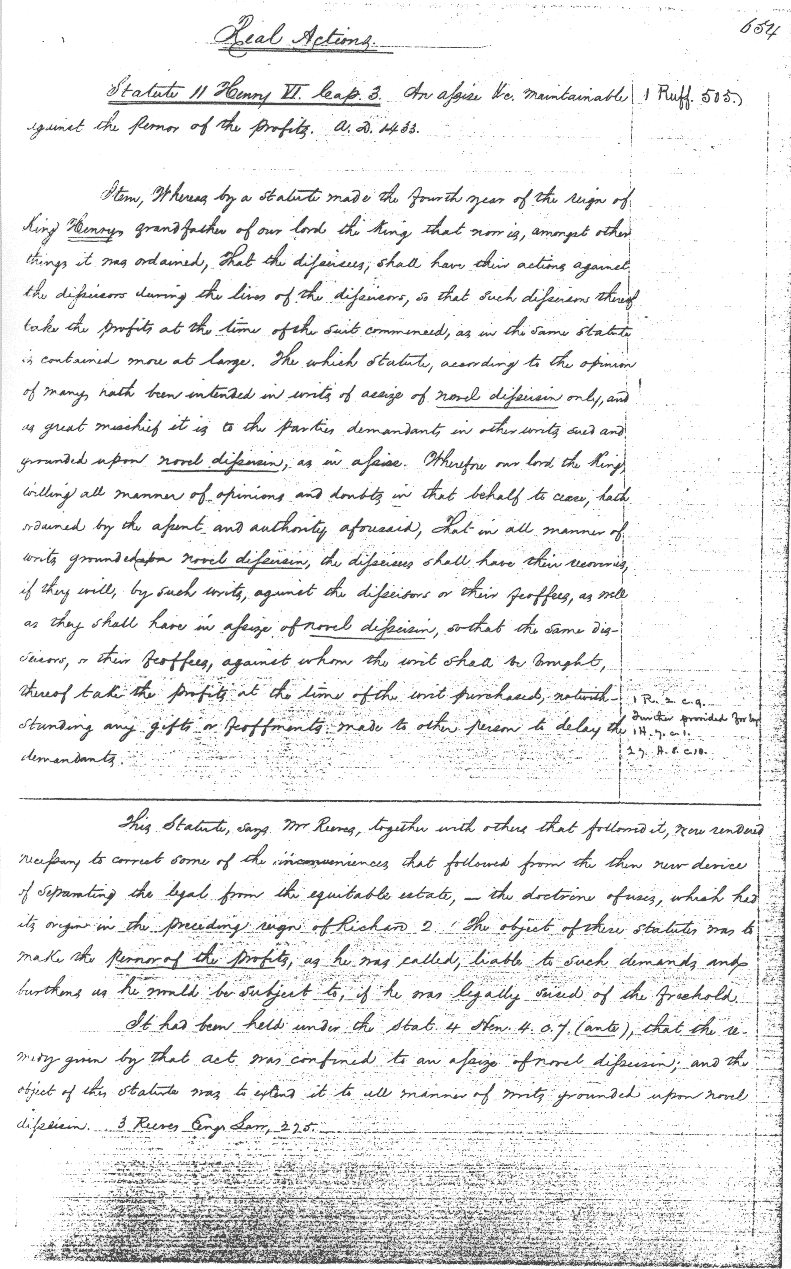 654
Real Actions.
Statute 11 Henry VI. Cap. 3. An assise &c. maintainable
1 Ruff. 505.)
against the Pernor of the profits. A.D. 1433.
Item, Whereas by a Statute made the fourth year of the reign of
King Henry, grandfather of our lord the King that now is, amongst other
things it was ordained, That the disseisees, shall have their actions against
the disseisors during the lives of the disseisors, so that such disseisors thereof
take the profits at the time of the suit commenced, as in the same Statute
is contained more at large. The which Statute, according to the opinion
of many, hath been intended in writs of assize of novel disseisin only, and
as great mischief it is to the parties demandants in other writs sued and
grounded upon novel disseisin, as in assise. Wherefore our lord the King,
willing all manner of opinions and doubts in that behalf to cease, hath
ordained by the assent and authority aforesaid, That in all manner of
writs grounded upon novel disseisin, the disseisees shall have their recoveries,
if they will, by such writs, against the disseisors or their feoffees, as well
as they shall have in assize of novel disseisin, so that the same dis-
seisors, or their feoffees, against whom the writ shall be brought,
thereof take the profits at the time of the writ purchased, notwith-
standing any gifts or feoffments made to other person to delay the
demandants.
1 R. 2. c. 9.
Further provided for by
1 H. 7. c. 1.
27. H. 8. c. 10.
This Statute, says Mr Reeves, together with others that followed it, were rendered
necessary to correct some of the inconveniences that followed from the then new device
of separating the legal from the equitable estate, — the doctrine of uses, which had
its origin in the preceding reign of Richard 2. The object of these Statutes was to
make the pernor of the profits, as he was called, liable to such demands and
burthens as he would be subject to, if he was legally seised of the freehold.
It had been held under the Stat. 4 Hen. 4. c. 7. (ante), that the re-
medy given by that act was confined to an assize of novel disseisin; and the
object of this Statute was to extend it to all manner of writs grounded upon novel
disseisin. 3 Reeves Eng. Law, 275.